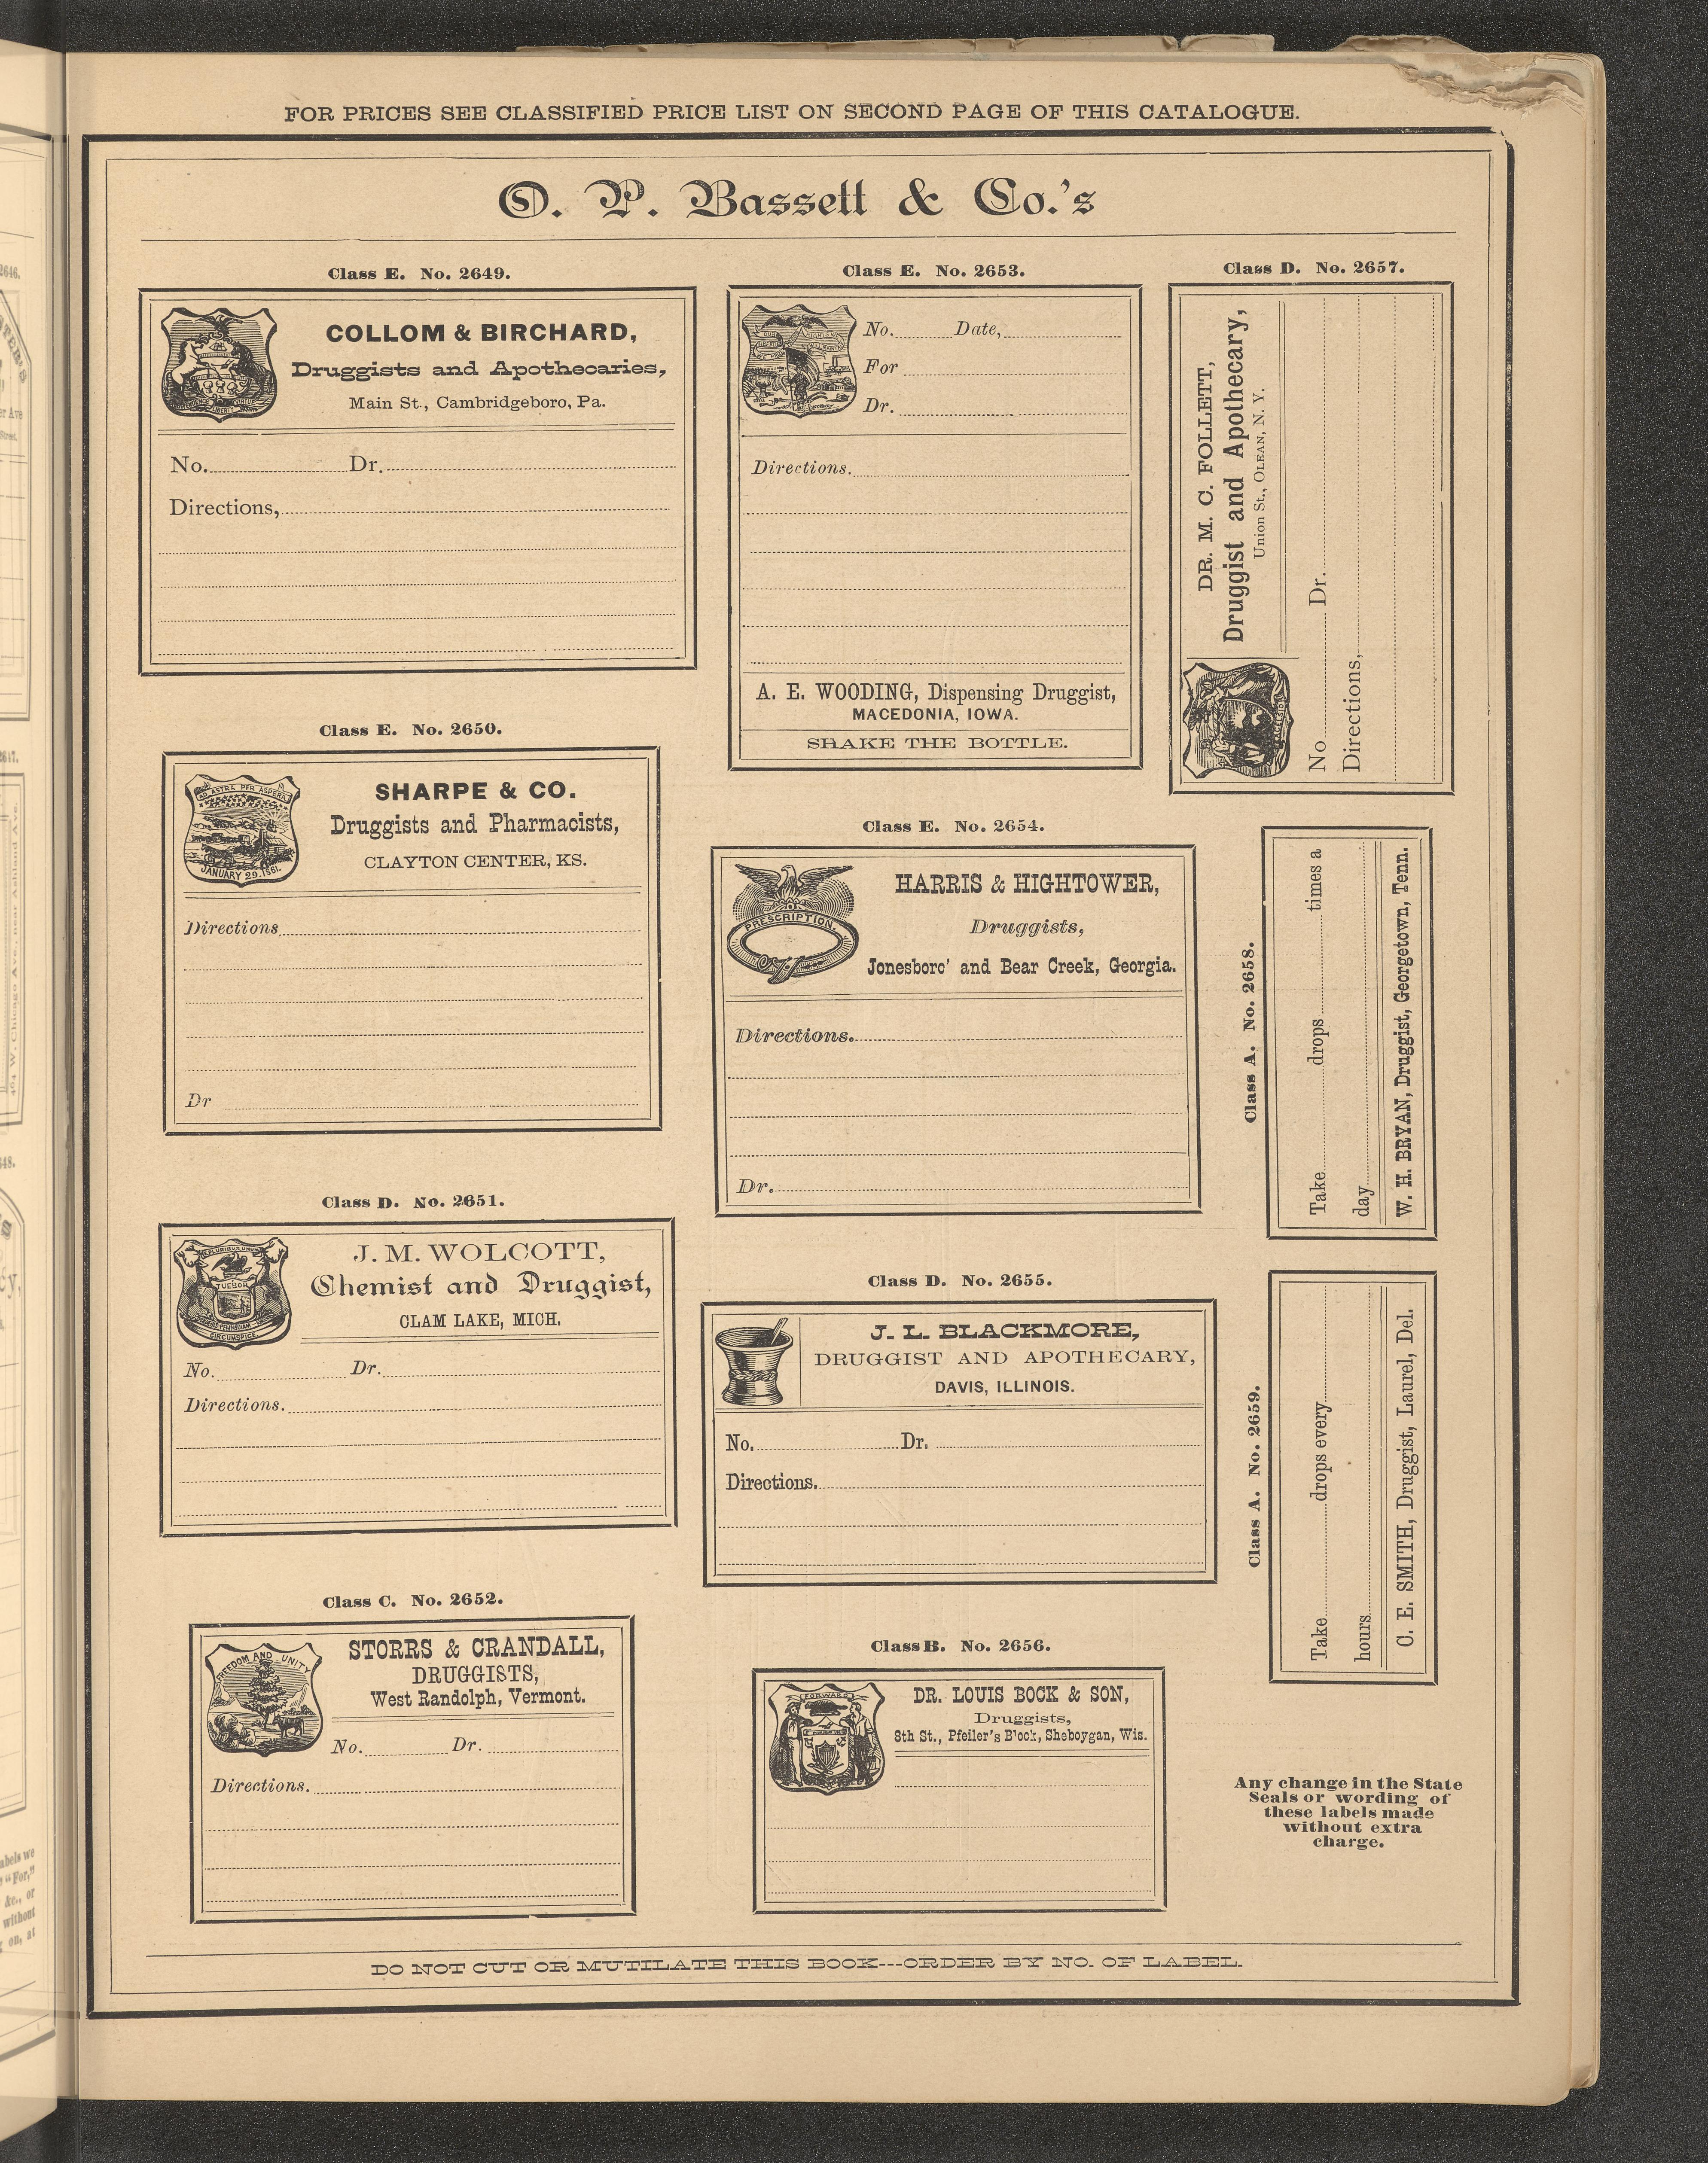 FOR PRICES SEE CLASSIFIED PRICE LIST ON SECOND PAGE OF THIS CATALOGUE.
O. P. Bassett & Co.'s
Class E. No. 2649.
COLLOM & BIRCHARD,
Druggists and Apothecaries,
Main St., Cambridgeboro, Pa.
No. Dr.
Directions,
Class E. No. 2650.
AD ASTRA PER ASPERA
JANUARY 29. 1861.
SHARPE & CO.
Druggists and Pharmacists,
CLAYTON CENTER, KS.
Directions
Dr
Class D. No. 2651.
TUEBOR
CIRCUMSPICE
J. M. WOLCOTT,
Chemist and Druggist,
CLAM LAKE, MICH.
No. Dr.
Directions.
Class C. No. 2652.
FREEDOM AND UNITY
STORRS & CRANDALL,
DRUGGISTS,
West Randolph, Vermont.
No. Dr.
Directions.
Class E. No. 2653.
No. Date,
For
Dr.
Directions.
A. E. WOODING, Dispensing Druggist,
MACEDONIA, IOWA.
SHAKE THE BOTTLE.
Class E. No. 2654.
PRESCRIPTION.
HARRIS & HIGHTOWER,
Druggists,
Jonesboro' and Bear Creek, Georgia.
Directions.
Dr.
Class D. No. 2655.
J. L. BLACKMORE,
DRUGGIST AND APOTHECARY,
DAVIS, ILLINOIS.
No. Dr.
Directions.
Class B. No. 2656.
FORWARD
DR. LOUIS BOCK & SON,
Druggists,
8th St., Pfeiler's Block, Sheboygan, Wis.
Class D. No. 2657.
DR. M. C. FOLLETT,
Druggist and Apothecary,
Union St., OLEAN, N. Y.
No Dr.
Directions,
Class A. No. 2658.
Take drops times a
day
W. H. BRYAN, Druggist, Georgetown, Tenn.
Class A. No. 2659.
Take drops every
hours
C. E. SMITH, Druggist, Laurel, Del.
Any change in the State
Seals or wording of
these labels made
without extra
charge.
DO NOT CUT OR MUTILATE THIS BOOK---ORDER BY NO. OF LABEL.